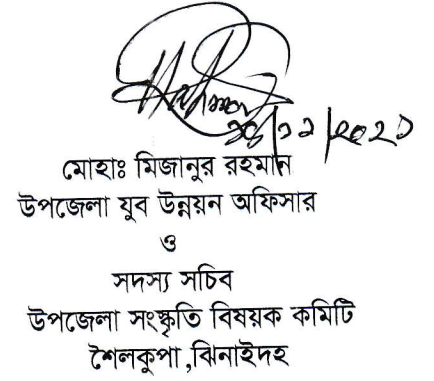 মোহাঃ মিজানুর রহমান
উপজেলা যুব উন্নয়ন অফিসার
ও
সদস্য সচিব
উপজেলা সংস্কৃতি বিষয়ক কমিটি
শৈলকুপা ,ঝিনাইদহ